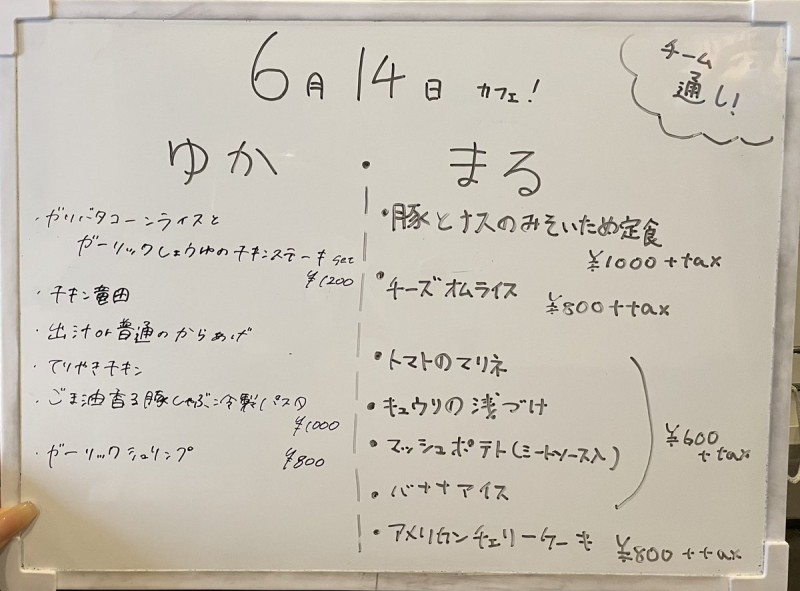 6月14日 カフェ!
チーム
通し!
ゆか・まる
・ガリバタコーンライスと
ガーリックしょうゆのチキンステーキset
¥1200
・チキン竜田
・出汁or普通のからあげ
・てりやきチキン
・ごま油香る豚しゃぶ冷製パスタ
¥1000
・ガーリックシュリンプ ¥800
・豚とナスのみそいため定食
¥1000+tax
・チーズオムライス ¥800+tax
・トマトのマリネ
・キュウリの浅づけ
・マッシュポテト(ミートソース入)
・バナナアイス
¥600
+tax
・アメリカンチェリーケーキ ¥800+tax